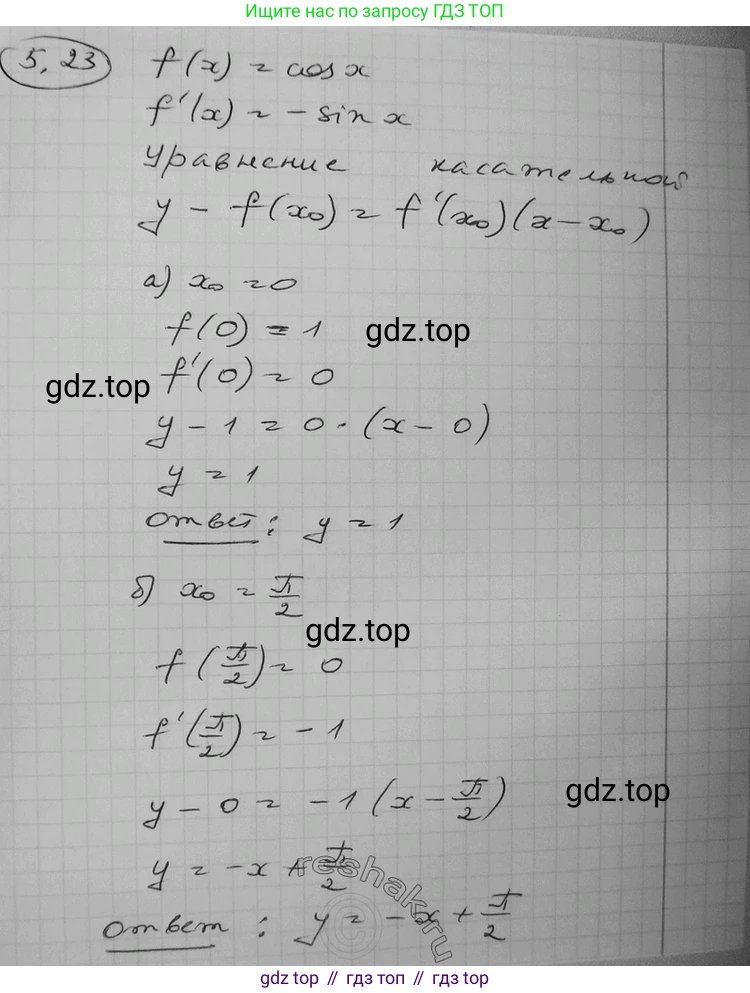 Ищите нас по запросу ГДЗ ТОП
5,23 f(x) = cos x
f'(x) = - sin x
уравнение касательной
y - f(x₀) = f'(x₀)(x - x₀)
а) x₀ = 0
f(0) = 1
gdz.top
gdz.top
f'(0) = 0
y - 1 = 0 · (x - 0)
y = 1
ответ: y = 1
б) x₀ = π/2
gdz.top
f(π/2) = 0
f'(π/2) = - 1
y - 0 = - 1 (x - π/2)
gdz.top
y = - x + π/2
reshak.ru
ответ: y = - x + π/2
gdz top // гдз топ // gdz top